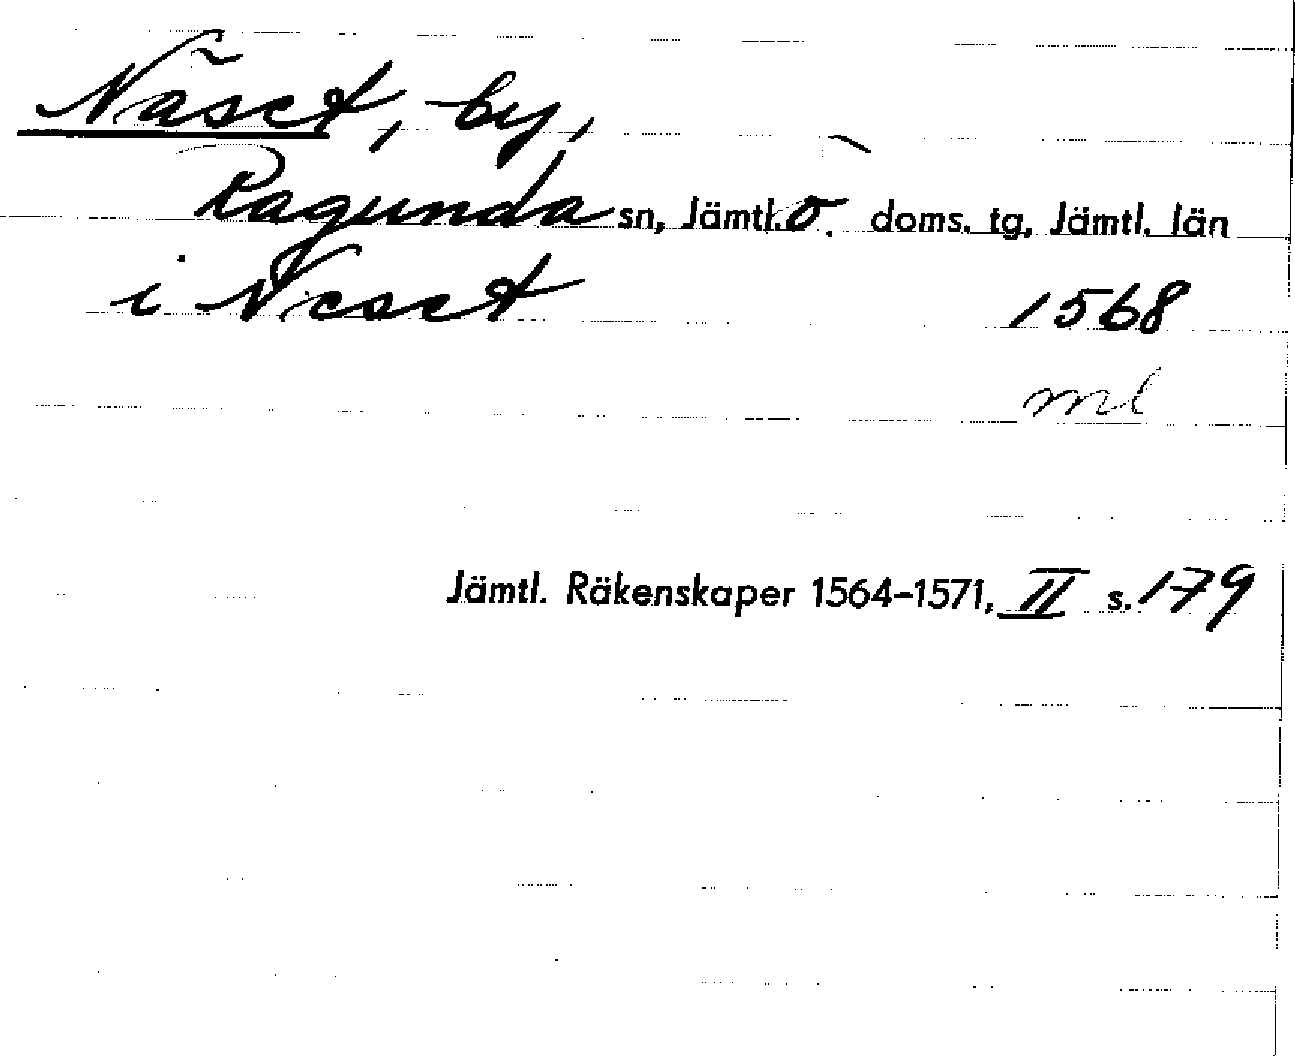 Näset, by,
Ragunda sn, Jämtl. ö. doms. tg, Jämtl. län
i Neset 1568
ml
Jämtl. Räkenskaper 1564-1571, II s. 179